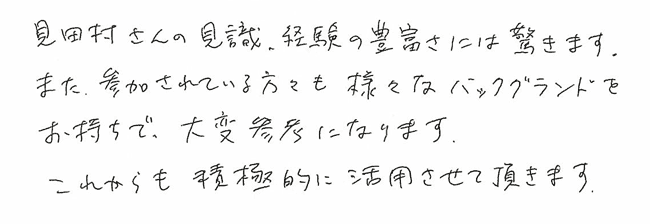 見田村さんの見識、経験の豊富さには驚きます。
また、参加されている方々も様々なバックグランドを
お持ちで、大変参考になります。
これからも積極的に活用させて頂きます。